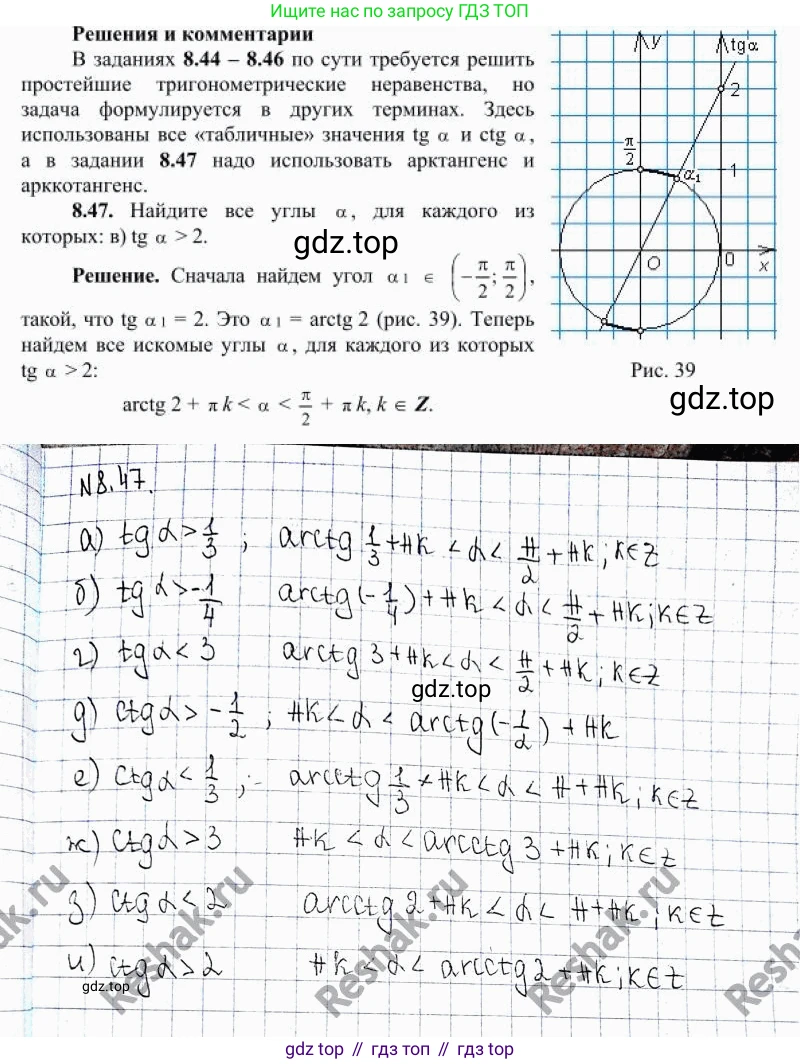 Ищите нас по запросу ГДЗ ТОП
Решения и комментарии
В заданиях 8.44 – 8.46 по сути требуется решить
простейшие тригонометрические неравенства, но
задача формулируется в других терминах. Здесь
использованы все «табличные» значения tg α и ctg α,
а в задании 8.47 надо использовать арктангенс и
арккотангенс.
8.47. Найдите все углы α, для каждого из
которых: в) tg α > 2.
gdz.top
Решение. Сначала найдем угол α₁ ∈ (−π/2; π/2),
такой, что tg α₁ = 2. Это α₁ = arctg 2 (рис. 39). Теперь
найдем все искомые углы α, для каждого из которых
tg α > 2:
arctg 2 + πk < α < π/2 + πk, k ∈ Z.
y
tgα
2
π/2
1
α₁
O
0
x
Рис. 39
gdz.top
N8.47.
а) tgα>1/3 ; arctg 1/3 +πk <α< π/2 + πk; k∈Z
б) tgα>-1/4 arctg(-1/4)+πk <α< π/2 + πk; k∈Z
г) tgα<3 arctg 3+πk<α< π/2 +πk; k∈Z
gdz.top
д) ctgα>-1/2 ; πk<α< arcctg(-1/2) + πk
е) ctgα<1/3 ; arcctg 1/3 +πk<α< π + πk; k∈Z
ж) ctgα>3 πk <α<arcctg 3 +πk; k∈Z
з) ctgα<2 arcctg 2+πk <α< π+πk ; k∈Z
и) ctgα>2 πk <α< arcctg 2 +πk; k∈Z
gdz.top
Reshak.ru
Reshak.ru
Reshak.ru
Reshak.ru
gdz.top // гдз топ // gdz.top